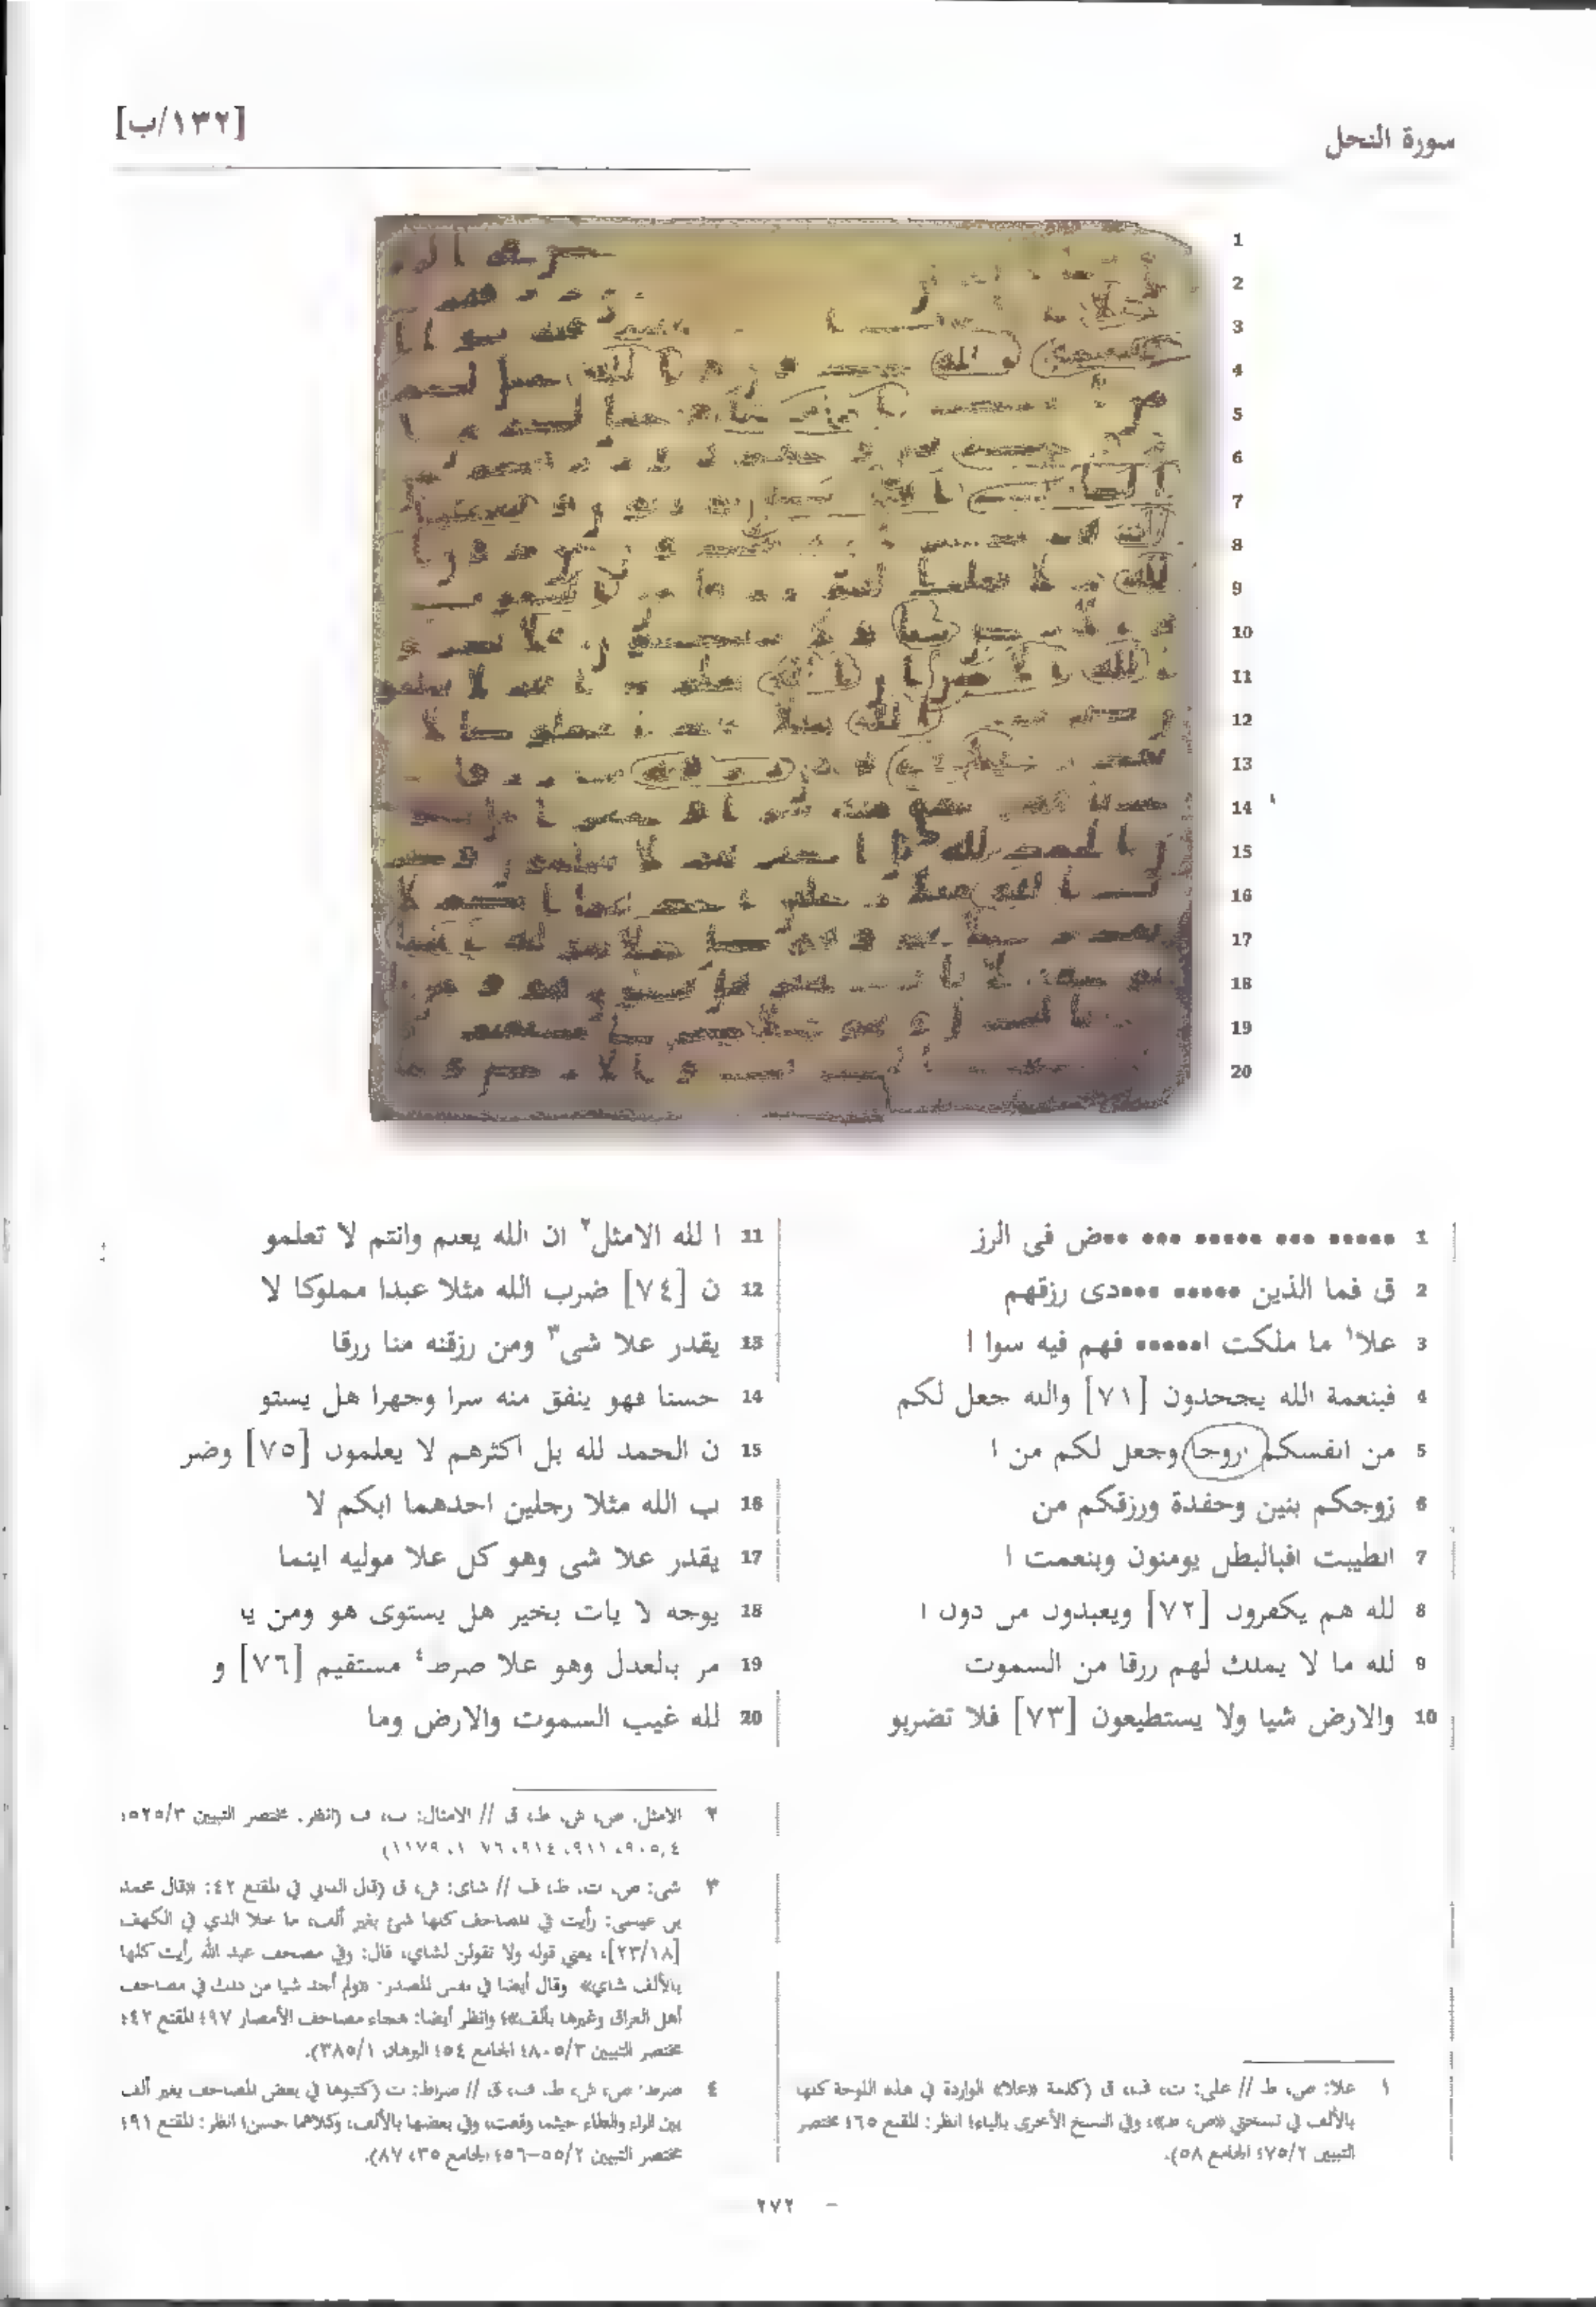 سورة النحل
[١٣٢/ب]
1
2
3
4
5
6
7
8
9
10
11
12
13
14
15
16
17
18
19
20
1 ••••• ••• ••••• ••• ••ض فى الرز
2 ق فما الذين ••••• •••دى رزقهم
3 علا١ ما ملكت ا••••• فهم فيه سوا ا
4 فبنعمة الله يجحدون [٧١] والله جعل لكم
5 من انفسكم اروحا وجعل لكم من ا
6 زوجكم بنين وحفدة ورزقكم من
7 الطيبت افبالبطل يومنون وبنعمت ا
8 لله هم يكفرون [٧٢] ويعبدون من دون ا
9 لله ما لا يملك لهم ررقا من السموت
10 والارض شيا ولا يستطيعون [٧٣] فلا تضربو
11 ا لله الامثل٢ ان الله يعلم وانتم لا تعلمو
12 ن [٧٤] ضرب الله مثلا عبدا مملوكا لا
13 يقدر علا شى٣ ومن رزقنه منا ررقا
14 حسنا فهو ينفق منه سرا وجهرا هل يستو
15 ن الحمد لله بل اكثرهم لا يعلمون [٧٥] وضر
16 ب الله مثلا رجلين احدهما ابكم لا
17 يقدر علا شى وهو كل علا موليه اينما
18 يوجه لا يات بخير هل يستوى هو ومن يا
19 مر بالعدل وهو علا صرط٤ مستقيم [٧٦] و
20 لله غيب السموت والارض وما
١ علا: ص، ط // على: ت، ف، ق (كلمة «علا» الواردة في هذه اللوحة كلها
بالألف في نسختي «ص، ط»، وفي النسخ الأخرى بالياء؛ انظر: المقنع ٦٥؛ مختصر
التبيين ٧٥/٢؛ الجامع ٥٨).
٢ الامثل: ص، ش، ط، ق // الامثال: ت، ف (انظر: مختصر التبيين ٥٢٥/٣؛
٣ شى: ص، ت، ط، ف // شاى: ش، ق (قال الداني في المقنع ٤٢: «قال محمد
بن عيسى: رأيت في المصاحف كلها شئ بغير ألف، ما خلا الذي في الكهف
[٢٣/١٨]، يعني قوله ولا تقولن لشاي، قال: وفي مصحف عبد الله رأيت كلها
بالألف شاي» وقال أيضا في نفس المصدر: «ولم أجد شيا من ذلك في مصاحف
أهل العراق وغيرها بألف»؛ وانظر أيضا: هجاء مصاحف الأمصار ٩٧؛ المقنع ٤٢؛
مختصر التبيين ٨٠٥/٣؛ الجامع ٥٤؛ البرهان ٣٨٥/١).
٤ صرط: ص، ش، ط، ف، ق // صراط: ت (كتبوها في بعض المصاحف بغير ألف
بين الراء والطاء حيثما وقعت، وفي بعضها بالألف، وكلاهما حسن؛ انظر: المقنع ٩١؛
مختصر التبيين ٥٥/٢–٥٦؛ الجامع ٣٥، ٨٧).
٢٧٢